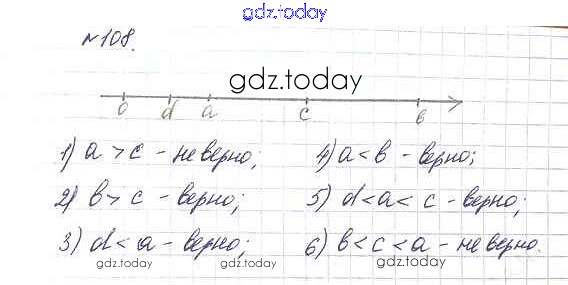 gdz.today
№108.
gdz.today
0 d a c в
1) a > c - неверно; 4) a < в - верно;
2) в > c - верно; 5) d < a < c - верно;
3) d < a - верно; 6) в < c < a - неверно.
gdz.today gdz.today